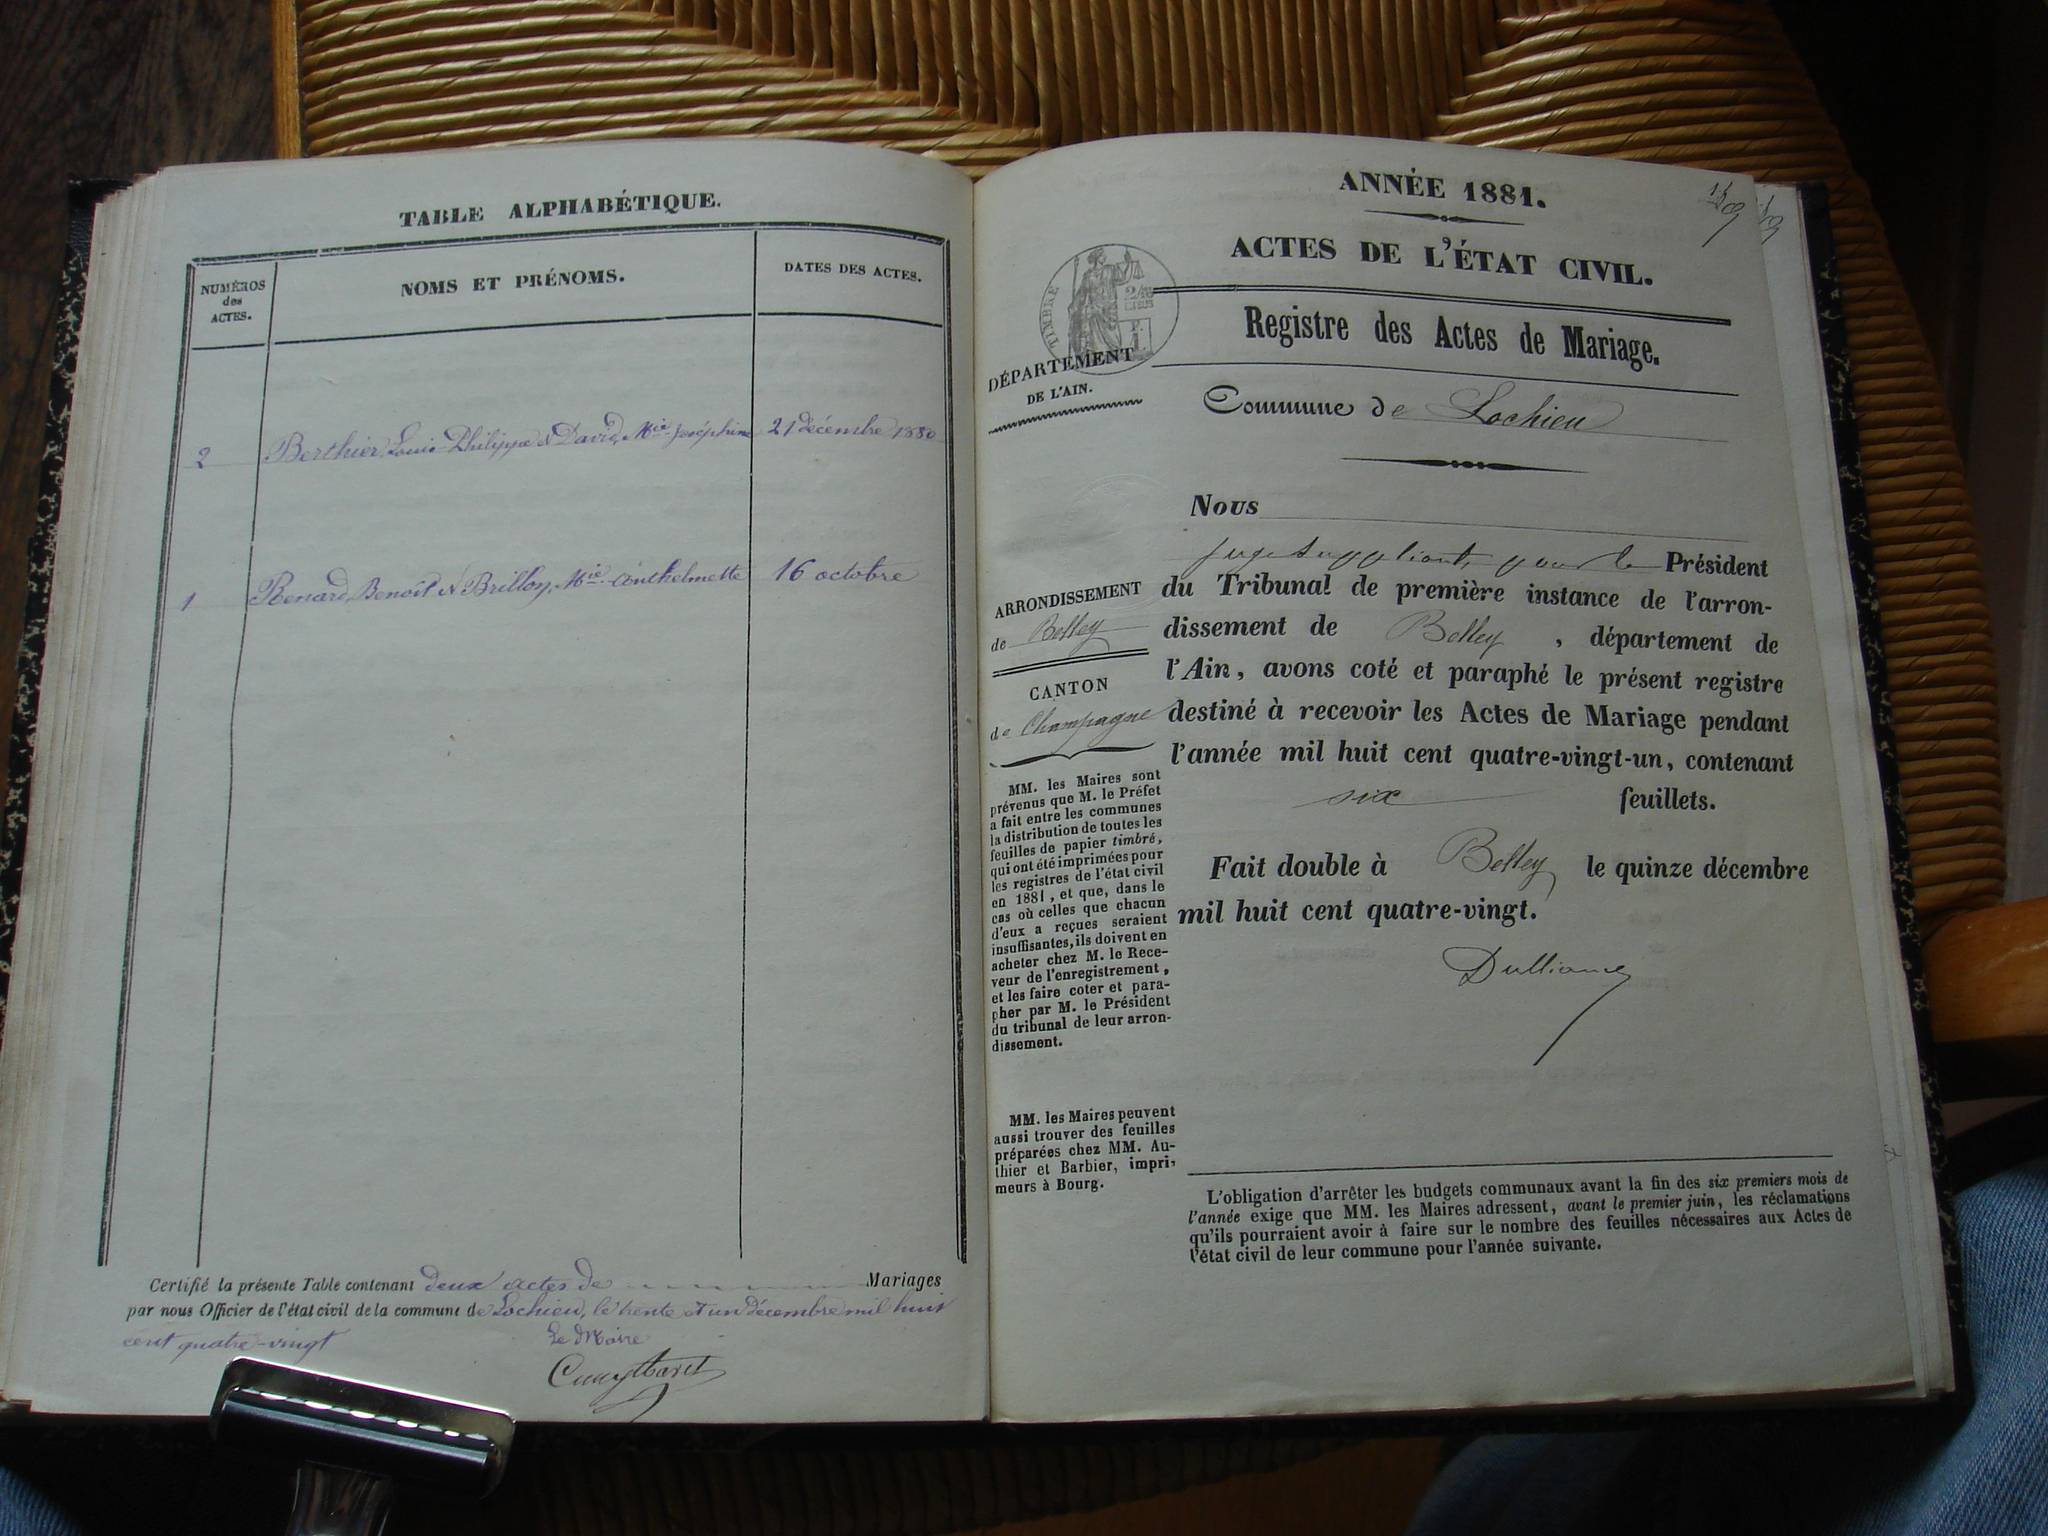 TABLE ALPHABÉTIQUE.
NUMÉROS
des
ACTES.
NOMS ET PRÉNOMS.
DATES DES ACTES.
2 Berthier, Louis-Philippe & David, Mie Joséphine 21 décembre 1880
1 Renard, Benoît & Brilloy, Mie Anthelmette 16 octobre
Certifié la présente Table contenant deux actes de Mariages
par nous Officier de l'état civil de la commune de Lochieu, le trente et un décembre mil huit
cent quatre-vingt
Le Maire
ANNÉE 1881.
ACTES DE L'ÉTAT CIVIL.
Registre des Actes de Mariage.
TIMBRE
DÉPARTEMENT
DE L'AIN.
Commune de Lochieu
Nous
juge suppléant, pour le Président
du Tribunal de première instance de l'arron-
dissement de Belley, département de
l'Ain, avons coté et paraphé le présent registre
destiné à recevoir les Actes de Mariage pendant
l'année mil huit cent quatre-vingt-un, contenant
six feuillets.
Fait double à Belley le quinze décembre
mil huit cent quatre-vingt.
ARRONDISSEMENT
de Belley
CANTON
de Champagne
MM. les Maires sont
prévenus que M. le Préfet
a fait entre les communes
la distribution de toutes les
feuilles de papier timbré,
qui ont été imprimées pour
les registres de l'état civil
en 1881, et que, dans le
cas où celles que chacun
d'eux a reçues seraient
insuffisantes, ils doivent en
acheter chez M. le Rece-
veur de l'enregistrement,
et les faire coter et para-
pher par M. le Président
du tribunal de leur arron-
dissement.
MM. les Maires peuvent
aussi trouver des feuilles
préparées chez MM. Au-
thier et Barbier, impri-
meurs à Bourg.
L'obligation d'arrêter les budgets communaux avant la fin des six premiers mois de
l'année exige que MM. les Maires adressent, avant le premier juin, les réclamations
qu'ils pourraient avoir à faire sur le nombre des feuilles nécessaires aux Actes de
l'état civil de leur commune pour l'année suivante.